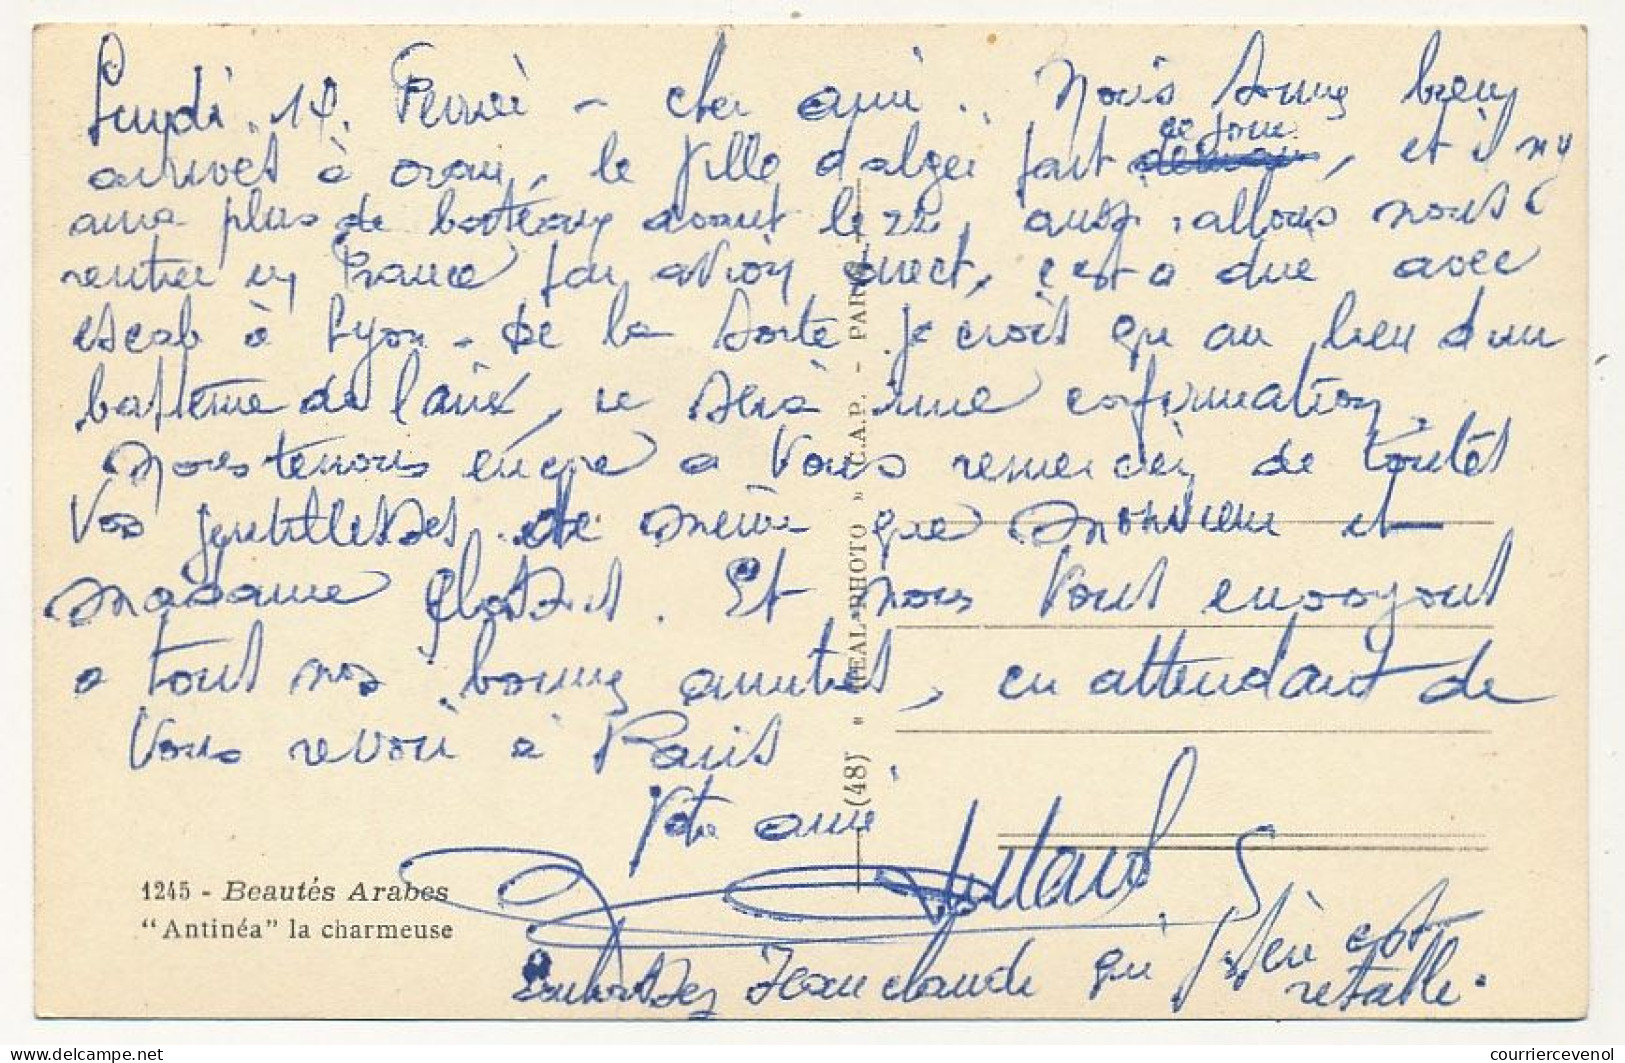 Lundi 18 Fevrier - cher ami. Nous sommes bien
arrivés à oran, le Ville d'alger part ce jour, et il n'y
aura plus de bateaux avant le 22, aussi allons nous
rentrer en France par avion direct, c'est a dire avec
escale à Lyon - De la sorte je crois qu au lieu d'un
bapteme de l'air, ce sera une confirmation.
Nous tenons encore a vous remercier de toutes
vos gentillesses de même que Monsieur et
Madame. Et nous vous envoyons
a tous nos bonnes amitiés, en attendant de
vous revoir à Paris
Votre ami
Embrassez Jean claude qui j'espère est
retabli.
1245 - Beautés Arabes
"Antinéa" la charmeuse
(48) " IDEAL-PHOTO " C.A.P. - PARIS
courriercevenol
delcampe.net